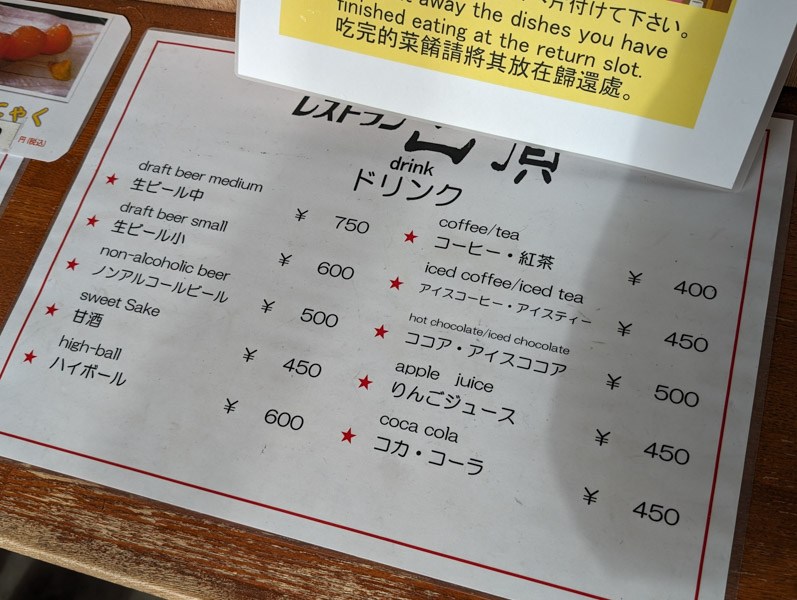 片付けて下さい。
away the dishes you have
finished eating at the return slot.
吃完的菜餚請將其放在歸還處。
にゃく
円(税込)
レストラン
drink
ドリンク
★ draft beer medium
生ビール中 ¥ 750
★ draft beer small
生ビール小 ¥ 600
★ non-alcoholic beer
ノンアルコールビール ¥ 500
★ sweet Sake
甘酒 ¥ 450
★ high-ball
ハイボール ¥ 600
★ coffee/tea
コーヒー・紅茶 ¥ 400
★ iced coffee/iced tea
アイスコーヒー・アイスティー ¥ 450
★ hot chocolate/iced chocolate
ココア・アイスココア ¥ 500
★ apple juice
りんごジュース ¥ 450
★ coca cola
コカ・コーラ ¥ 450